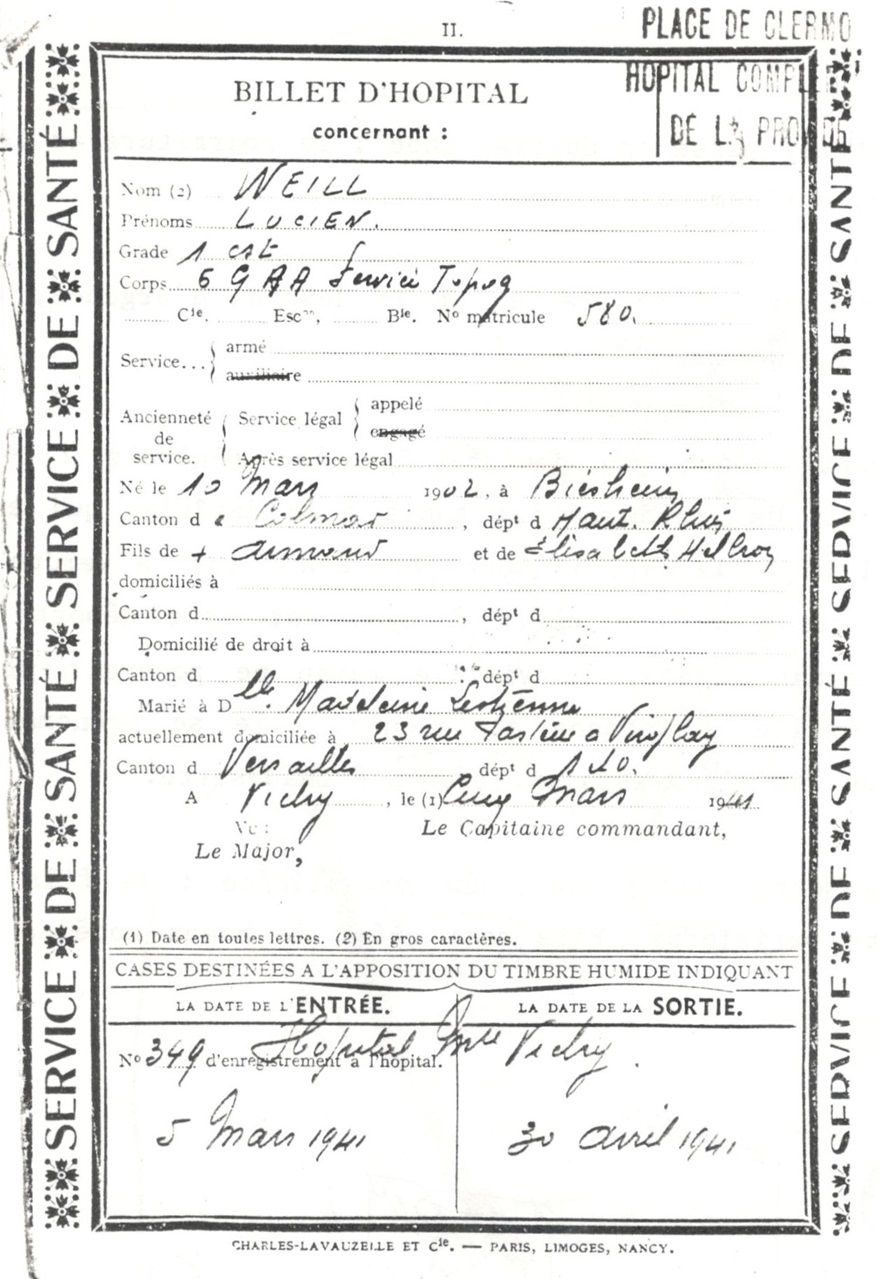 II.
PLACE DE CLERMO
HOPITAL COMPLE
DE L PRO
BILLET D'HOPITAL
concernant :
Nom (2) WEILL
Prénoms LUCIEN.
Grade 1 cst
Corps 6 G A A Service Topog
Cie. Esc on, Bie. No matricule 580.
Service... armé
auxiliaire
Ancienneté de service. Service légal appelé
engagé
Après service légal
Né le 10 Mars 1902, à Biesheim
Canton d e Colmar, dépt d Haut. Rhin
Fils de + Armand et de Elisabeth
domiciliés à
Canton d, dépt d
Domicilié de droit à
Canton d dépt d
Marié à D lle. Madeleine
actuellement domiciliée à 23 rue Pasteur a Viroflay
Canton d Versailles dépt d S & O.
A Vichy, le (1) Cinq Mars 1941
Vu :
Le Capitaine commandant,
Le Major,
(1) Date en toutes lettres. (2) En gros caractères.
CASES DESTINÉES A L'APPOSITION DU TIMBRE HUMIDE INDIQUANT
LA DATE DE L'ENTRÉE. LA DATE DE LA SORTIE.
Hopital Mre Vichy.
No 349 d'enregistrement à l'hôpital.
5 Mars 1941 30 avril 1941
CHARLES-LAVAUZELLE ET Cie. — PARIS, LIMOGES, NANCY.
SERVICE DE SANTÉ SERVICE DE SANTÉ SERVICE DE SANTÉ
SERVICE DE SANTÉ SERVICE DE SANTÉ SERVICE DE SANTÉ